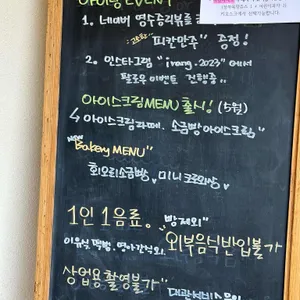 아이랑 EVENT
1. 네이버 영수증리뷰로
피칸만주" 증정!
2. 인스타그램 "irang.2023" 에서
팔로우 이벤트 진행중...
아이스크림MENU출시! (5월)
아이스크림라떼. 소금빵아이스크림"
NEW
"Bakery MENU"
회오리소금빵, 미니크로와상
1인 1음료. "빵제외"
이유식. 떡뻥. 영아간식외. 외부음식반입불가
상업용촬영불가"